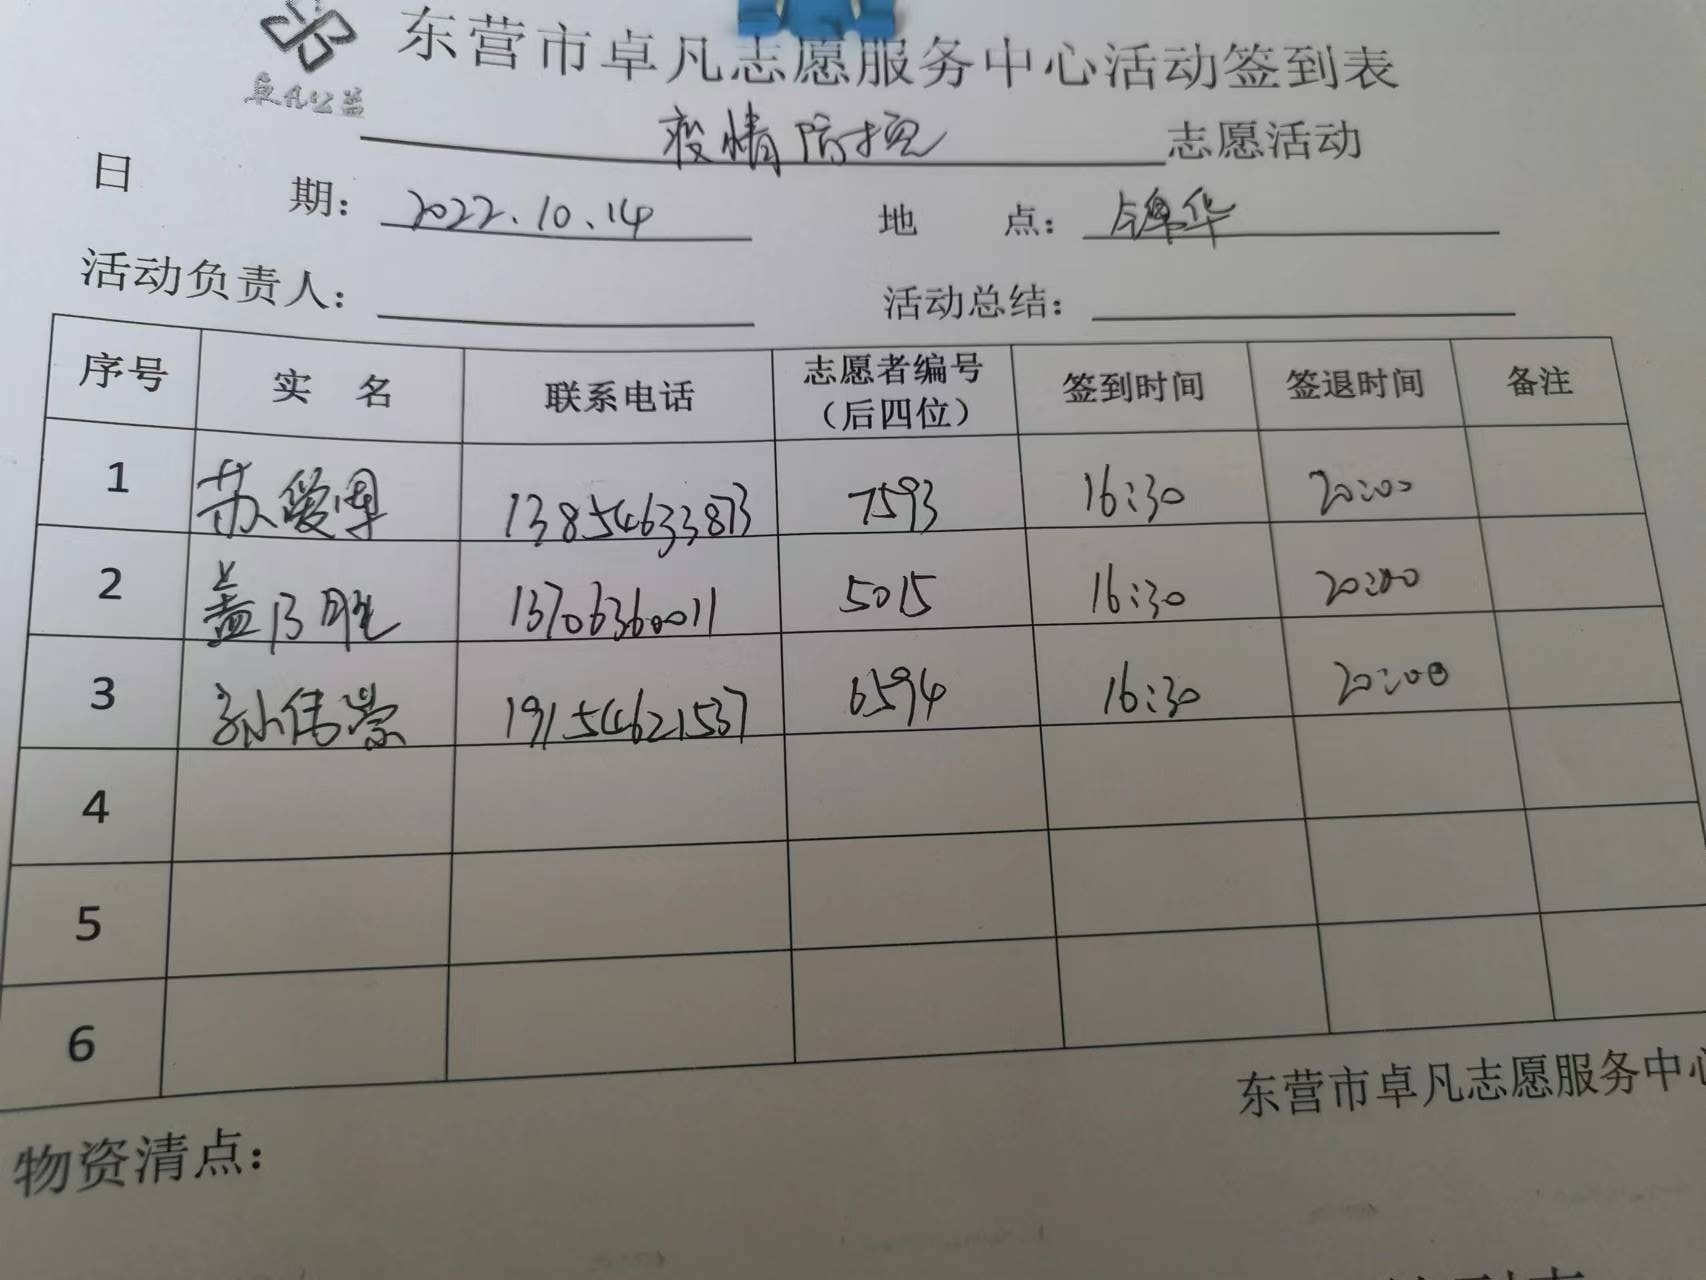 东营市卓凡志愿服务中心活动签到表
卓凡公益
疫情防控 志愿活动
日 期： 2022.10.14 地 点： 锦华
活动负责人： 活动总结：
序号 实 名 联系电话 志愿者编号（后四位） 签到时间 签退时间 备注
1 苏爱 13854633873 7593 16:30 20:00
2 盖乃胜 13706360011 5015 16:30 20:00
3 孙伟崇 19154621537 6594 16:30 20:00
4
5
6
东营市卓凡志愿服务中心
物资清点：